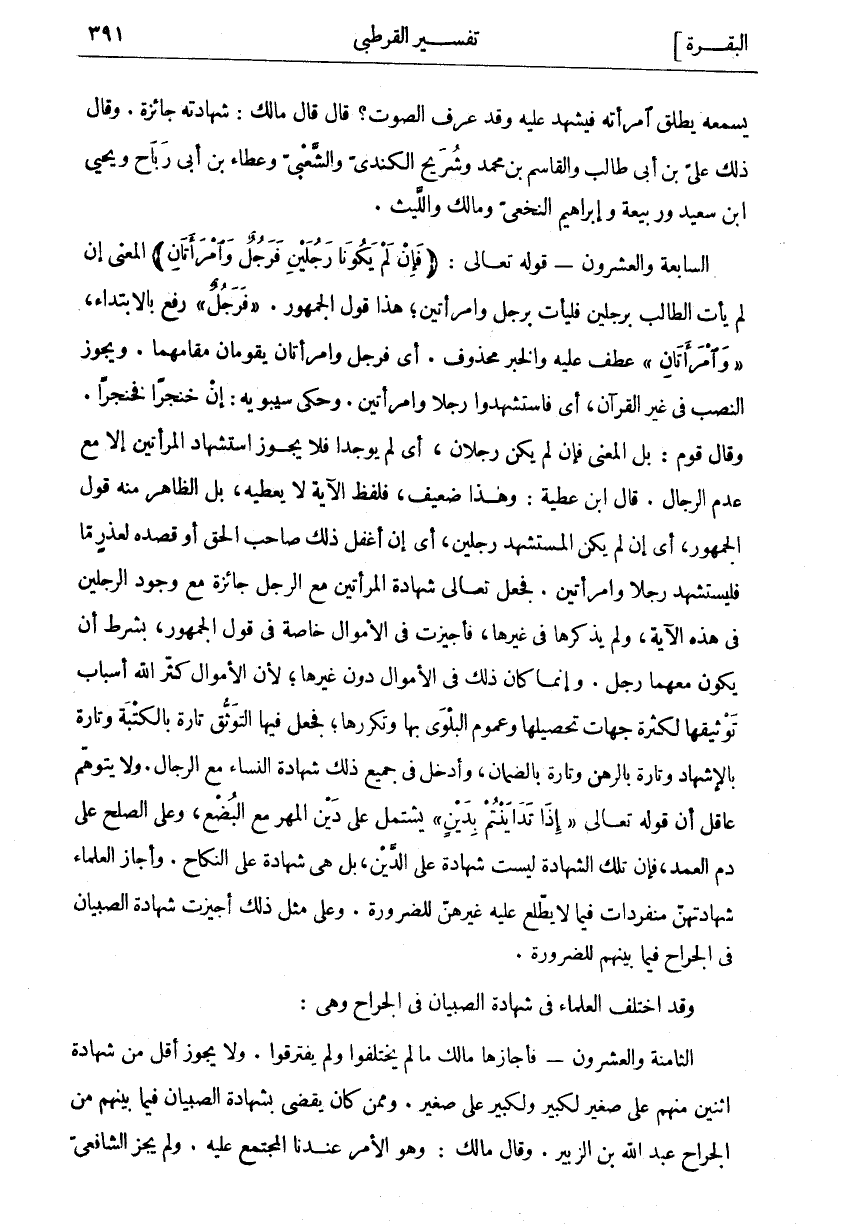 البقــرة] تفســـير القرطبى ٣٩١
يسمعه يطلق ٱمرأته فيشهد عليه وقد عرف الصوت؟ قال قال مالك : شهادته جائزة . وقال
ذلك علىّ بن أبى طالب والقاسم بن محمد وشُرَيح الكندىّ والشَّعْبىّ وعطاء بن أبى رَبَاح ويحيى
ابن سعيد وربيعة وإبراهيم النخعىّ ومالك واللَّيث .
السابعة والعشرون — قوله تعـالى : ﴿ فَإِنْ لَمْ يَكُونَا رَجُلَيْنِ فَرَجُلٌ وَٱمْرَأَتَانِ ﴾ المعنى إن
لم يأت الطالب برجلين فليأت برجل وامرأتين؛ هذا قول الجمهور . «فَرَجُلٌ» رفع بالابتداء،
« وَٱمْرَأَتَانِ » عطف عليه والخبر محذوف . أى فرجل وامرأتان يقومان مقامهما . ويجوز
النصب فى غير القرآن، أى فاستشهدوا رجلا وامرأتين . وحكى سيبويه : إنْ خنجرًا فخنجرًا .
وقال قوم : بل المعنى فإن لم يكن رجلان ، أى لم يوجدا فلا يجــوز استشهاد المرأتين إلا مع
عدم الرجال . قال ابن عطية : وهــذا ضعيف، فلفظ الآية لا يعطيه، بل الظاهـر منه قول
الجمهور، أى إن لم يكن المـستشهد رجلين، أى إن أغفل ذلك صاحب الحق أو قصده لعذرٍ مّا
فليستشهد رجلا وامرأتين . فجعل تعـالى شهادة المرأتين مع الرجل جائزة مع وجود الرجلين
فى هذه الآية، ولم يذكرها فى غيرها، فأجيزت فى الأموال خاصة فى قول الجمهور، بشرط أن
يكون معهما رجل . وإنمـا كان ذلك فى الأموال دون غيرها؛ لأن الأموال كثّر الله أسباب
تَوْثيقها لكثرة جهات تحصيلها وعموم البلْوَى بها وتكررها؛ فجعل فيها التوَثُّق تارة بالكتْبَة وتارة
بالإشهاد وتارة بالرهن وتارة بالضمان، وأدخل فى جميع ذلك شهادة النساء مع الرجال. ولا يتوهّم
عاقل أن قوله تعـالى « إِذَا تَدَايَنْتُمْ بِدَيْنٍ» يشتمل على دَيْن المهر مع البُضْع، وعلى الصلح على
دم العمد، فإن تلك الشهادة ليست شهادة على الدَّيْن، بل هى شهادة على النكاح . وأجاز العلماء
شهادتهنّ منفردات فيما لا يطّلع عليه غيرهنّ للضرورة . وعلى مثل ذلك أجيزت شهادة الصبيان
فى الجراح فيما بينهم للضرورة .
وقد اختلف العلماء فى شهادة الصبيان فى الجراح وهى :
الثامنة والعشرون — فأجازها مالك ما لم يختلفوا ولم يفترقوا . ولا يجوز أقل من شهادة
اثنين منهم على صغير لكبير ولكبير على صغير . وممن كان يقضى بشهادة الصبيان فيما بينهم من
الجراح عبد الله بن الزبير . وقال مالك : وهو الأمر عنــدنا المجتمع عليه . ولم يجز الشافعىّ